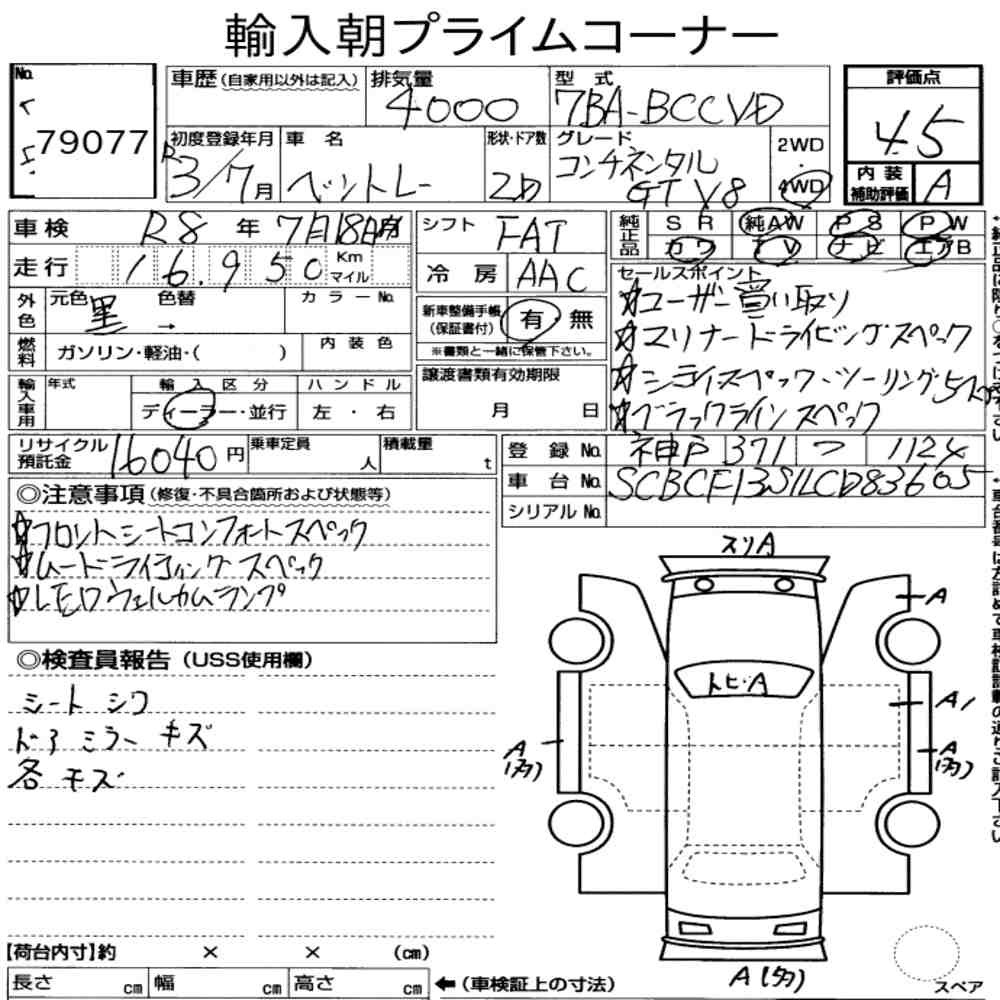 輸入朝プライムコーナー
No.
79077
車歴 (自家用以外は記入)
排気量
4000
型 式
7BA-BCCVD
評価点
4.5
初度登録年月
R3/7月
車 名
ベントレー
形状・ドア数
2D
グレード
コンチネンタル
GT V8
2WD
4WD
内装
補助評価
A
車検 R8 年 7月18日
走行 16.950 Km
マイル
シフト FAT
冷房 AAC
純正品
SR 純AW PS PW
カワ TV ナビ エアB
外色
元色 黒
色替 →
カラーNo.
燃料
ガソリン・軽油・( )
内装色
新車整備手帳
(保証書付)
有 無
※書類と一緒に保管下さい。
セールスポイント
☆ユーザー買い取り
☆マリナードライビングスペック
☆シティスペック、ツーリングスペック
☆ブラックラインスペック
輸入車用
年式
輸入区分
ディーラー・並行
ハンドル
左 ・ 右
譲渡書類有効期限
月 日
リサイクル
預託金
16040円
乗車定員
人
積載量
t
登録No. 神戸 371 つ 1124
車台No. SCBCF13S1LCD83605
シリアルNo.
◎注意事項 (修復・不具合箇所および状態等)
☆フロントシートコンフォートスペック
☆ムードライティングスペック
☆LEDウェルカムランプ
◎検査員報告 (USS使用欄)
シート シワ
ドアミラー キズ
各キズ
スリA
A
トヒ・A
A1
A
(多)
A
(多)
A(多)
スペア
【荷台内寸】約 × × (cm)
長さ cm 幅 cm 高さ cm
←(車検証上の寸法)